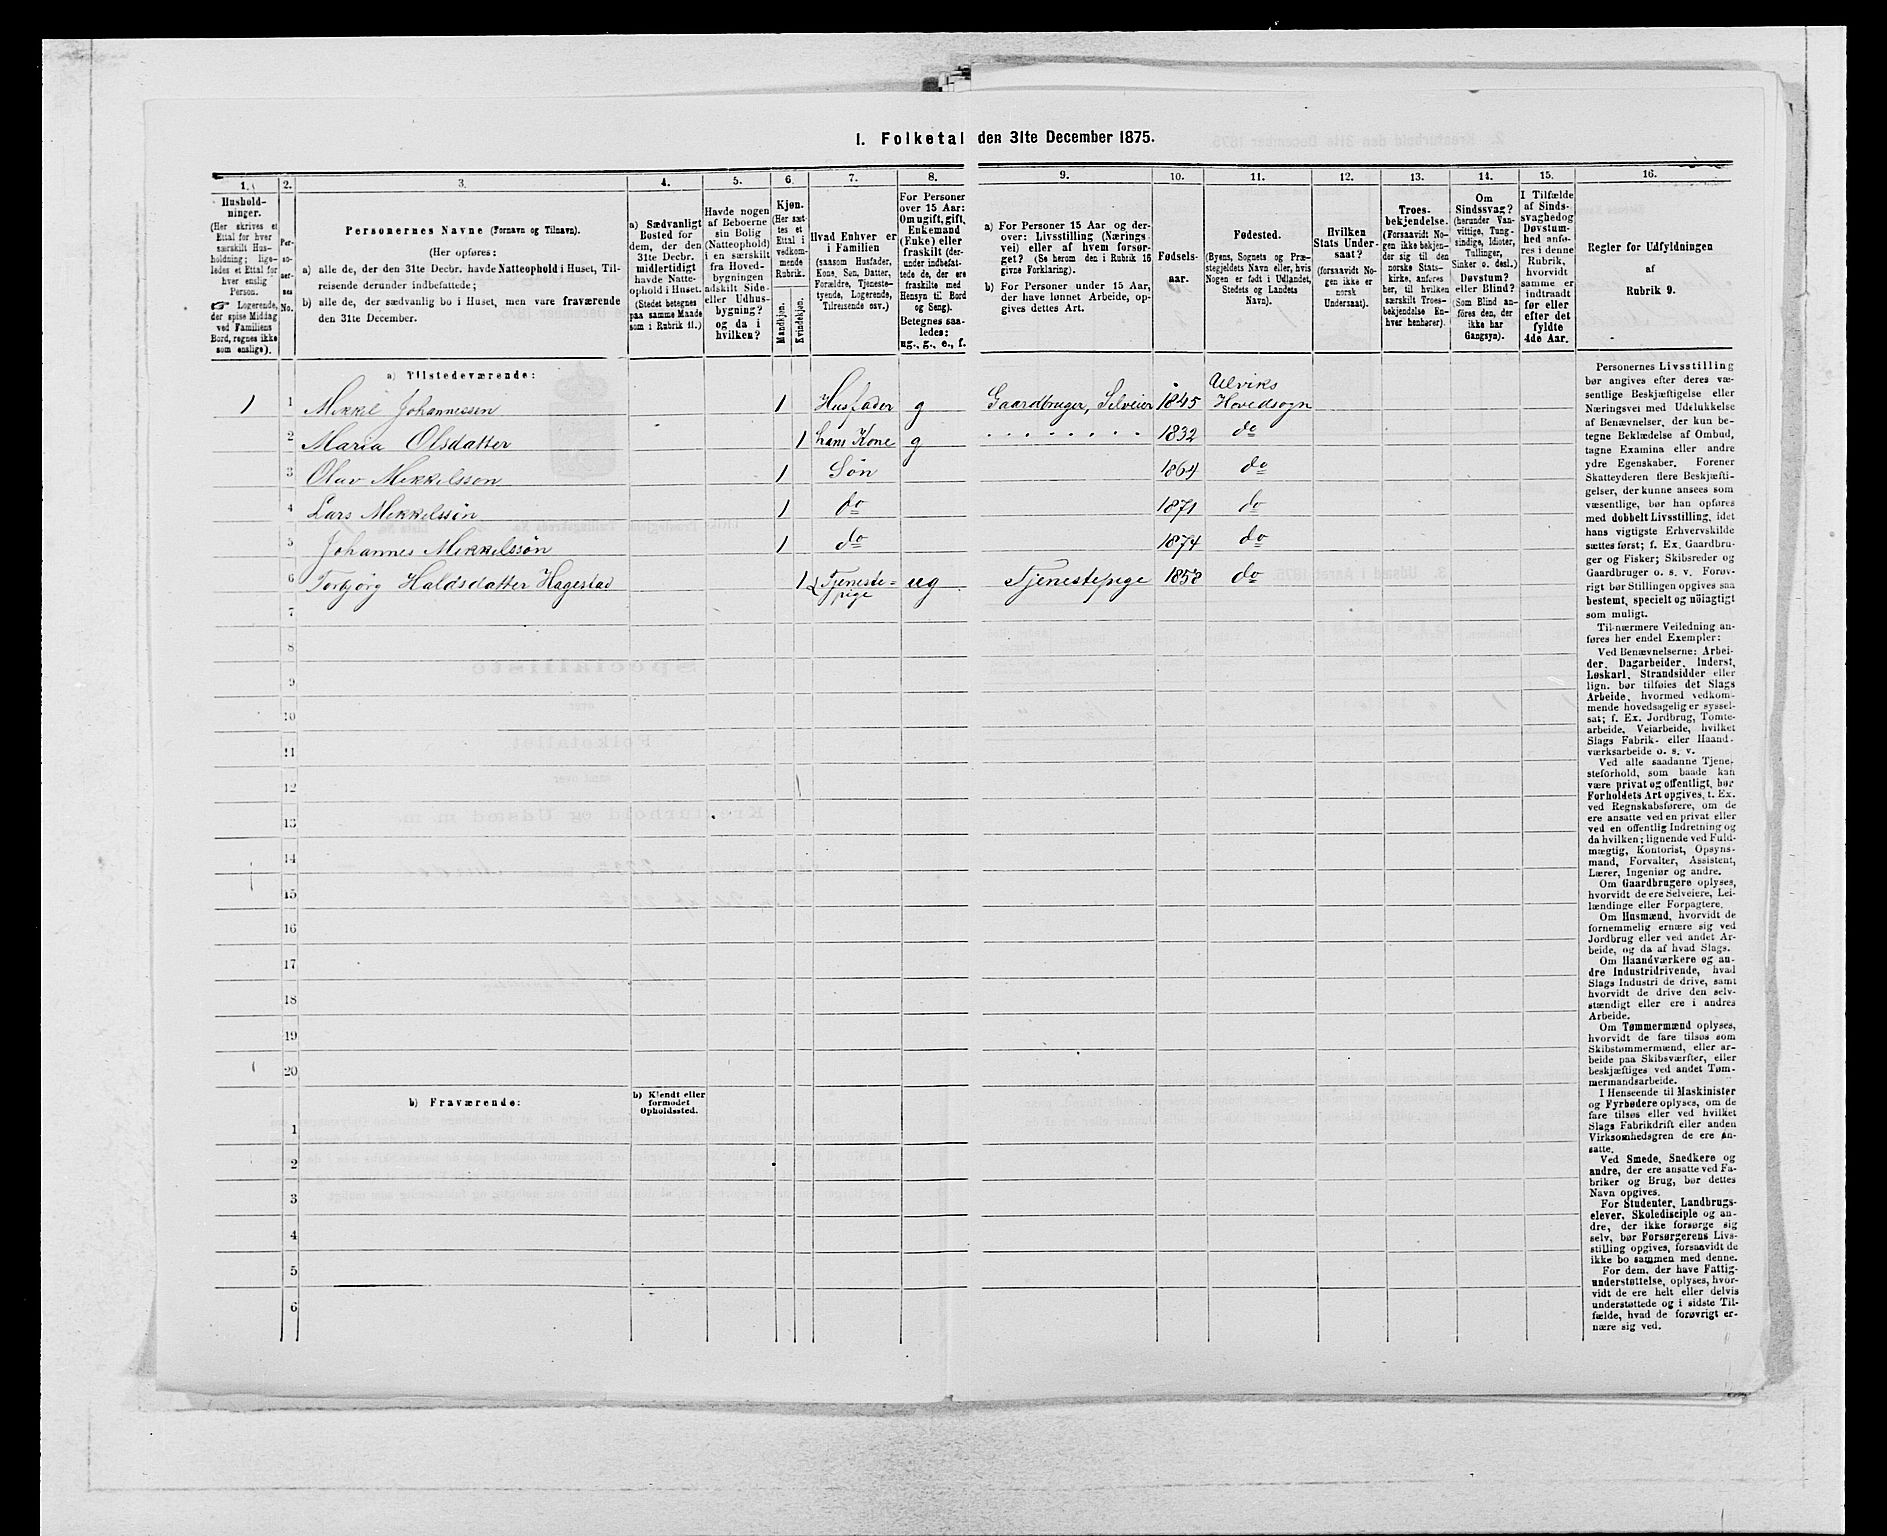 1. Folketal den 31te December 1875.
1. 2. 3. 4. 5. 6. 7. 8. 9. 10. 11. 12. 13. 14. 15. 16.
Hushold-
ninger.
(Her skrives et
Ettal for hver
særskilt Hus-
holdning; lige-
ledes et Ettal for
hver enslig
Person.
☞ Logerende,
der spise Middag
ved Familiens
Bord, regnes ikke
som enslige).
Per-
so-
ner-
nes
No.
Personernes Navne (Fornavn og Tilnavn).
(Her opføres:
a) alle de, der den 31te Decbr. havde Natteophold i Huset, Til-
reisende derunder indbefattede;
b) alle de, der sædvanlig bo i Huset, men vare fraværende
den 31te December.
a) Sædvanligt
Bosted for
dem, der den
31te Decbr.
midlertidigt
havde Natte-
ophold i Huset.
(Stedet betegnes
paa samme Maade
som i Rubrik 11.)
Havde nogen
af Beboerne
sin Bolig
(Natteophold)
i en særskilt
fra Hoved-
bygningen
adskilt Side-
eller Udhus-
bygning?
og da i
hvilken?
Kjøn.
(Her sæt-
tes et
Ettal i
vedkom-
mende
Rubrik.
Mandkjøn.
Kvindekjøn.
Hvad Enhver er
i Familien
(saasom Husfader,
Kone, Søn, Datter,
Forældre, Tjeneste-
tyende, Logerende,
Tilreisende osv.)
For Personer
over 15 Aar:
Om ugift, gift,
Enkemand
(Enke) eller
fraskilt (der-
under indbefat-
tede de, der ere
fraskilte med
Hensyn til Bord
og Seng).
Betegnes saa-
ledes:
ug., g., e., f.
a) For Personer 15 Aar og der-
over: Livsstilling (Nærings-
vei) eller af hvem forsør-
get? (Se herom den i Rubrik 16
givne Forklaring).
b) For Personer under 15 Aar,
der have lønnet Arbeide, op-
gives dettes Art.
Fødsels-
aar.
Fødested.
(Byens, Sognets og Præ-
stegjeldets Navn eller, hvis
Nogen er født i Udlandet,
Stedets og Landets
Navn).
Hvilken
Stats Under-
saat?
(forsaavidt No-
gen ikke er
norsk
Undersaat).
Troes-
bekjendelse.
(Forsaavidt No-
gen ikke bekjen-
der sig til den
norske Stats-
kirke, anføres
her, til hvilken
særskilt Troes-
bekjendelse En-
hver henhører).
Om
Sindssvag?
(herunder Van-
vittige, Tung-
sindige, Idioter,
Tullinger,
Sinker o. desl.)
Døvstum?
eller Blind?
(Som Blind an-
føres den, der
ikke har
Gangsyn).
I Tilfælde
af Sinds-
svaghed og
Døvstum-
hed anfø-
res i denne
Rubrik,
hvorvidt
samme er
indtraadt
før eller
efter det
fyldte
4de Aar.
Regler for Udfyldningen
af
Rubrik 9.
a) Tilstedeværende:
1 1 Mikkel Johannessen 1 Husfader g Gaardbruger, Selveier 1845 Ulviks Hovedsogn
2 Maria Olsdatter 1 hans Kone g 1832 do
3 Olav Mikkelsson 1 Søn 1864 do
4 Lars Mikkelssøn 1 do 1871 do
5 Johannes Mikkelssøn 1 do 1874 do
6 Torbjörg Haldsdatter Hagestad 1 Tjeneste-pige ug Tjenestepige 1858 do
7
8
9
10
11
12
13
14
15
16
17
18
19
20
b) Fraværende:
b) Kjendt eller
formodet
Opholdssted.
1
2
3
4
5
6
Personernes Livsstilling
bør angives efter deres væ-
sentlige Beskjæftigelse eller
Næringsvei med Udelukkelse
af Benævnelser, der kun be-
tegne Beklædelse af Ombud,
tagne Examina eller andre
ydre Egenskaber. Forener
Skatteyderen flere Beskjæfti-
gelser, der kunne ansees som
væsentlige, bør han opføres
med dobbelt Livsstilling, idet
hans vigtigste Erhvervskilde
sættes først; f. Ex. Gaardbru-
ger og Fisker; Skibsreder og
Gaardbruger o. s. v. Forøv-
rigt bør Stillingen opgives saa
bestemt, specielt og nöiagtigt
som muligt.
Til nærmere Veiledning an-
føres her endel Exempler:
Ved Benævnelserne: Arbei-
der, Dagarbeider, Inderst,
Løskarl, Strandsidder eller
lign. bør tilføies det Slags
Arbeide, hvormed vedkom-
mende hovedsagelig er syssel-
sat; f. Ex. Jordbrug, Tomte-
arbeide, Veiarbeide, hvilket
Slags Fabrik- eller Haand-
værksarbeide o. s. v.
Ved alle saadanne Tjene-
steforhold, som baade kan
være privat og offentligt, bør
Forholdets Art opgives, t. Ex.
ved Regnskabsførere, om de
ere ansatte ved en privat eller
ved en offentlig Indretning og
da hvilken; lignende ved Fuld-
mægtig, Kontorist, Opsyns-
mand, Forvalter, Assistent,
Lærer, Ingeniør og andre.
Om Gaardbrugere oplyses,
hvorvidt de ere Selveiere, Lei-
lændinge eller Forpagtere.
Om Husmænd, hvorvidt de
fornemmelig ernære sig ved
Jordbrug eller ved andet Ar-
beide, og da af hvad Slags.
Om Haandværkere og an-
dre Industridrivende, hvad
Slags Industri de drive, samt
hvorvidt de drive den selv-
stændigt eller ere i andres
Arbeide.
Om Tømmermænd oplyses,
hvorvidt de fare tilsøs som
Skibstømmermænd, eller ar-
beide paa Skibsværfter, eller
beskjæftiges ved andet Tøm-
mermandsarbeide.
I Henseende til Maskinister
og Fyrbødere oplyses, om de
fare tilsøs eller ved hvilket
Slags Fabrikdrift eller anden
Virksomhedsgren de ere an-
satte.
Ved Smede, Snedkere og
andre, der ere ansatte ved Fa-
briker og Brug, bør dettes
Navn opgives.
For Studenter, Landbrugs-
elever, Skoledisciple og an-
dre, der ikke forsørge sig
selv, bør Forsørgerens Livs-
stilling opgives, forsaavidt de
ikke bo sammen med denne.
For dem, der have Fattig-
understøttelse, oplyses, hvor-
vidt de ere helt eller delvis
understøttede og i sidste Til-
fælde, hvad de forøvrigt er-
nære sig ved.